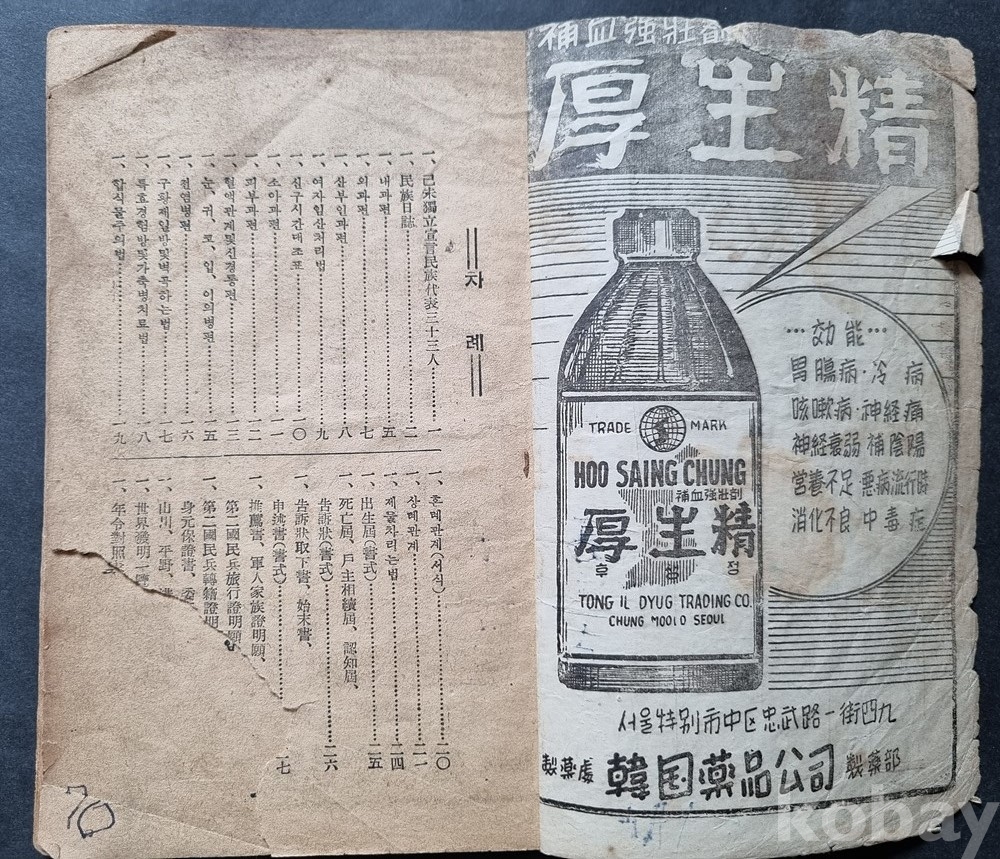 補血強壯劑
厚生精
…効能…
胃腸病·冷病
咳嗽病·神経痛
神経衰弱 補陰陽
営養不足 悪病流行時
消化不良 中毒症
TRADE MARK
HOO SAING CHUNG
補血強壯剤
厚生精
후생정
TONG IL DYUG TRADING CO.
CHUNG MOO10 SEOUL
서울特别市中区忠武路一街四九
製薬處 韓国薬品公司 製薬部
차례
一、己未獨立宣言民族代表三十三人 一
一、民族日誌 二
一、내과편 五
一、외과편 七
一、산부인과편 八
一、여자임산처리법 九
一、신구시간대조표 一〇
一、소아과편 一一
一、피부과편 一二
一、혈액관계및신경통편 一三
一、눈、귀、코、입、이의병편 一五
一、전염병편 一六
一、구황제일방및벽곡하는법 一七
一、특효경험방및가축병치료법 一八
一、합식물주의법 一九
一、혼례관계(서식) 二〇
一、상례관계 二一
一、제물차리는법 二四
一、出生屆(書式) 二五
一、死亡屆、戶主相續屆、認知屆、
告訴狀(書式) 二六
一、告訴狀取下書、始末書、
申述書(書式) 二七
一、推薦書、軍人家族證明願、
第二國民兵旅行證明願、
一、第二國民兵轉籍證明
身元保證書、委
一、山川、平野、
一、世界發明一覽
一、年令對照
70
kobay